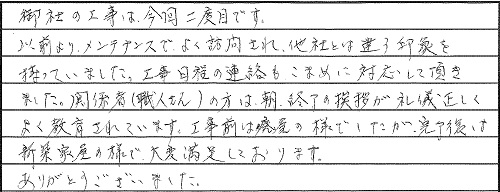 御社の工事は、今回二度目です。
以前より、メンテナンスでよく訪問され、他社とは違う印象を
持っていました。工事日程の連絡もこまめに対応して頂き
ました。関係者(職人さん)の方は、朝、終了の挨拶が礼儀正しく
よく教育されています。工事前は廃屋の様でしたが、完了後は
新築家屋の様で、大変満足しております。
ありがとうございました。